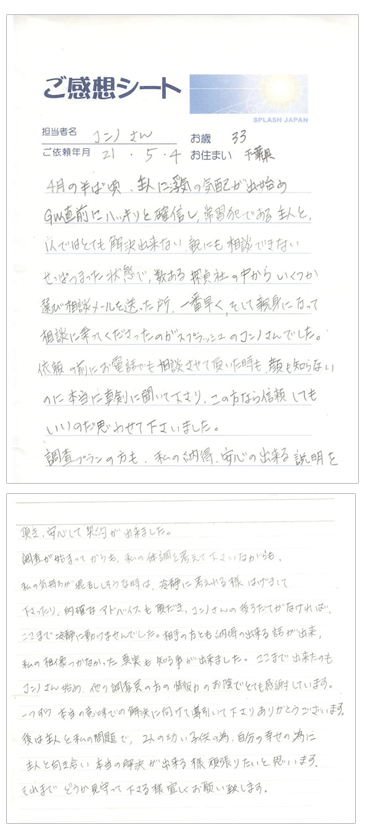 ご感想シート
SPLASH JAPAN
担当者名 コンノさん お歳 33
ご依頼年月 21.5.4 お住まい 千葉県
4月の半ば頃、主人に浮気の気配が出始め
GW直前にハッキリと確信し、常習犯である主人と、
1人ではとても解決出来ない 親にも相談できない
せっぱつまった状態で、数ある探偵社の中から いくつか
選び相談メールを送った所、一番早く、そして親身になって
相談に乗ってくださったのがスプラッシュのコンノさんでした。
依頼の前にお電話でも相談させて頂いた時も 顔も知らない
のに本当に真剣に聞いて下さり、この方なら信頼しても
いいのだと思わせて下さいました。
調査プランの方も、私の納得、安心の出来る説明を
頂き、安心して契約が出来ました。
調査が始まってからも、私の体調を考えて下さいながらも、
私の気持ちが混乱しそうな時は、冷静に考えれる様 はげまして
下さったり、的確なアドバイスも頂だき、コンノさんの後うだてがなければ、
ここまで冷静に動けませんでした。相手の方とも納得の出来る話が出来、
私の想像つかなかった真実も知る事が出来ました。ここまで出来たのも
コンノさん始め、他の調査員の方の協力のお陰でとても感謝しています。
一つずつ 本当の意味での解決に向けて導いて下さりありがとうございます。
後は主人と私の問題で、2人の幼い子供の為、自分の幸せの為に
主人と向き合い 本当の解決が出来る様 頑張りたいと思います。
それまで どうか見守って下さる様 宜しくお願い致します。